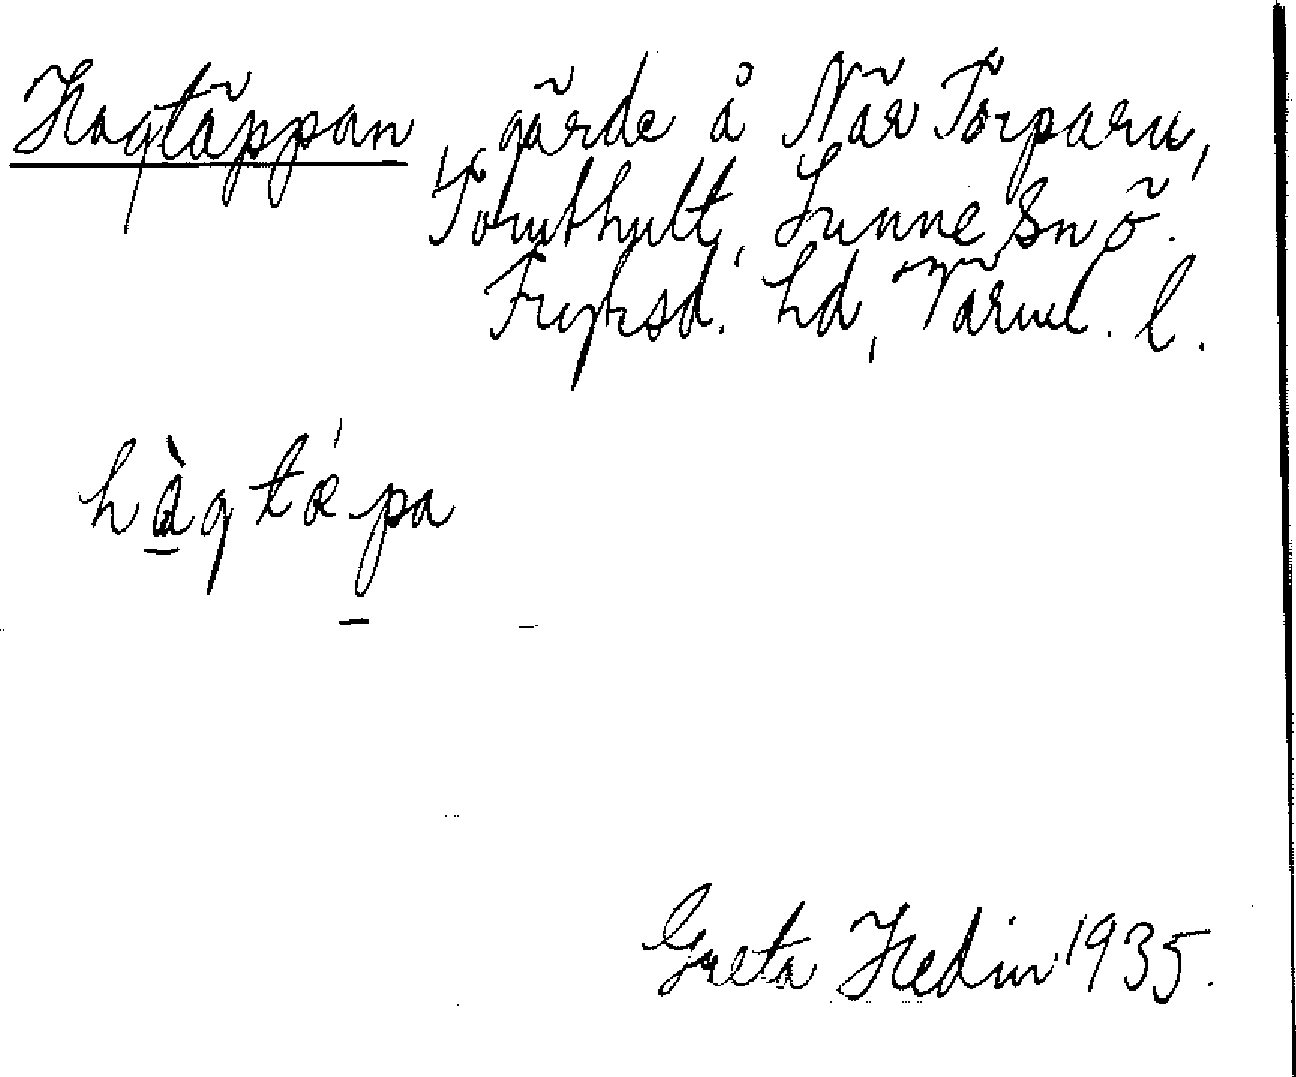 Hagtäppan, gärde å När Torparn,
Tomthult, Sunne sn ö.
Fryksd. hd, Värml. l.
hàgtǽpa
Greta Hedin 1935.